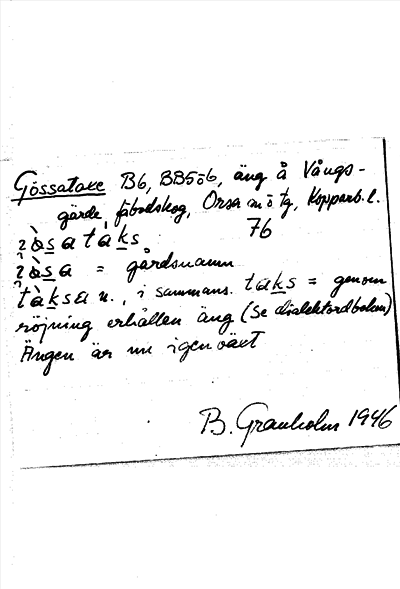 Gössatace B6, BB5o6, äng å Vångs-
gärde, fäbodskog, Orsa sn o tg, Kopparb. l.
76
= gårdsnamn
n., i sammans. taks = genom
röjning erhållen äng (Se dialektordboken)
Ängen är nu igenväxt
B. Granholm 1946